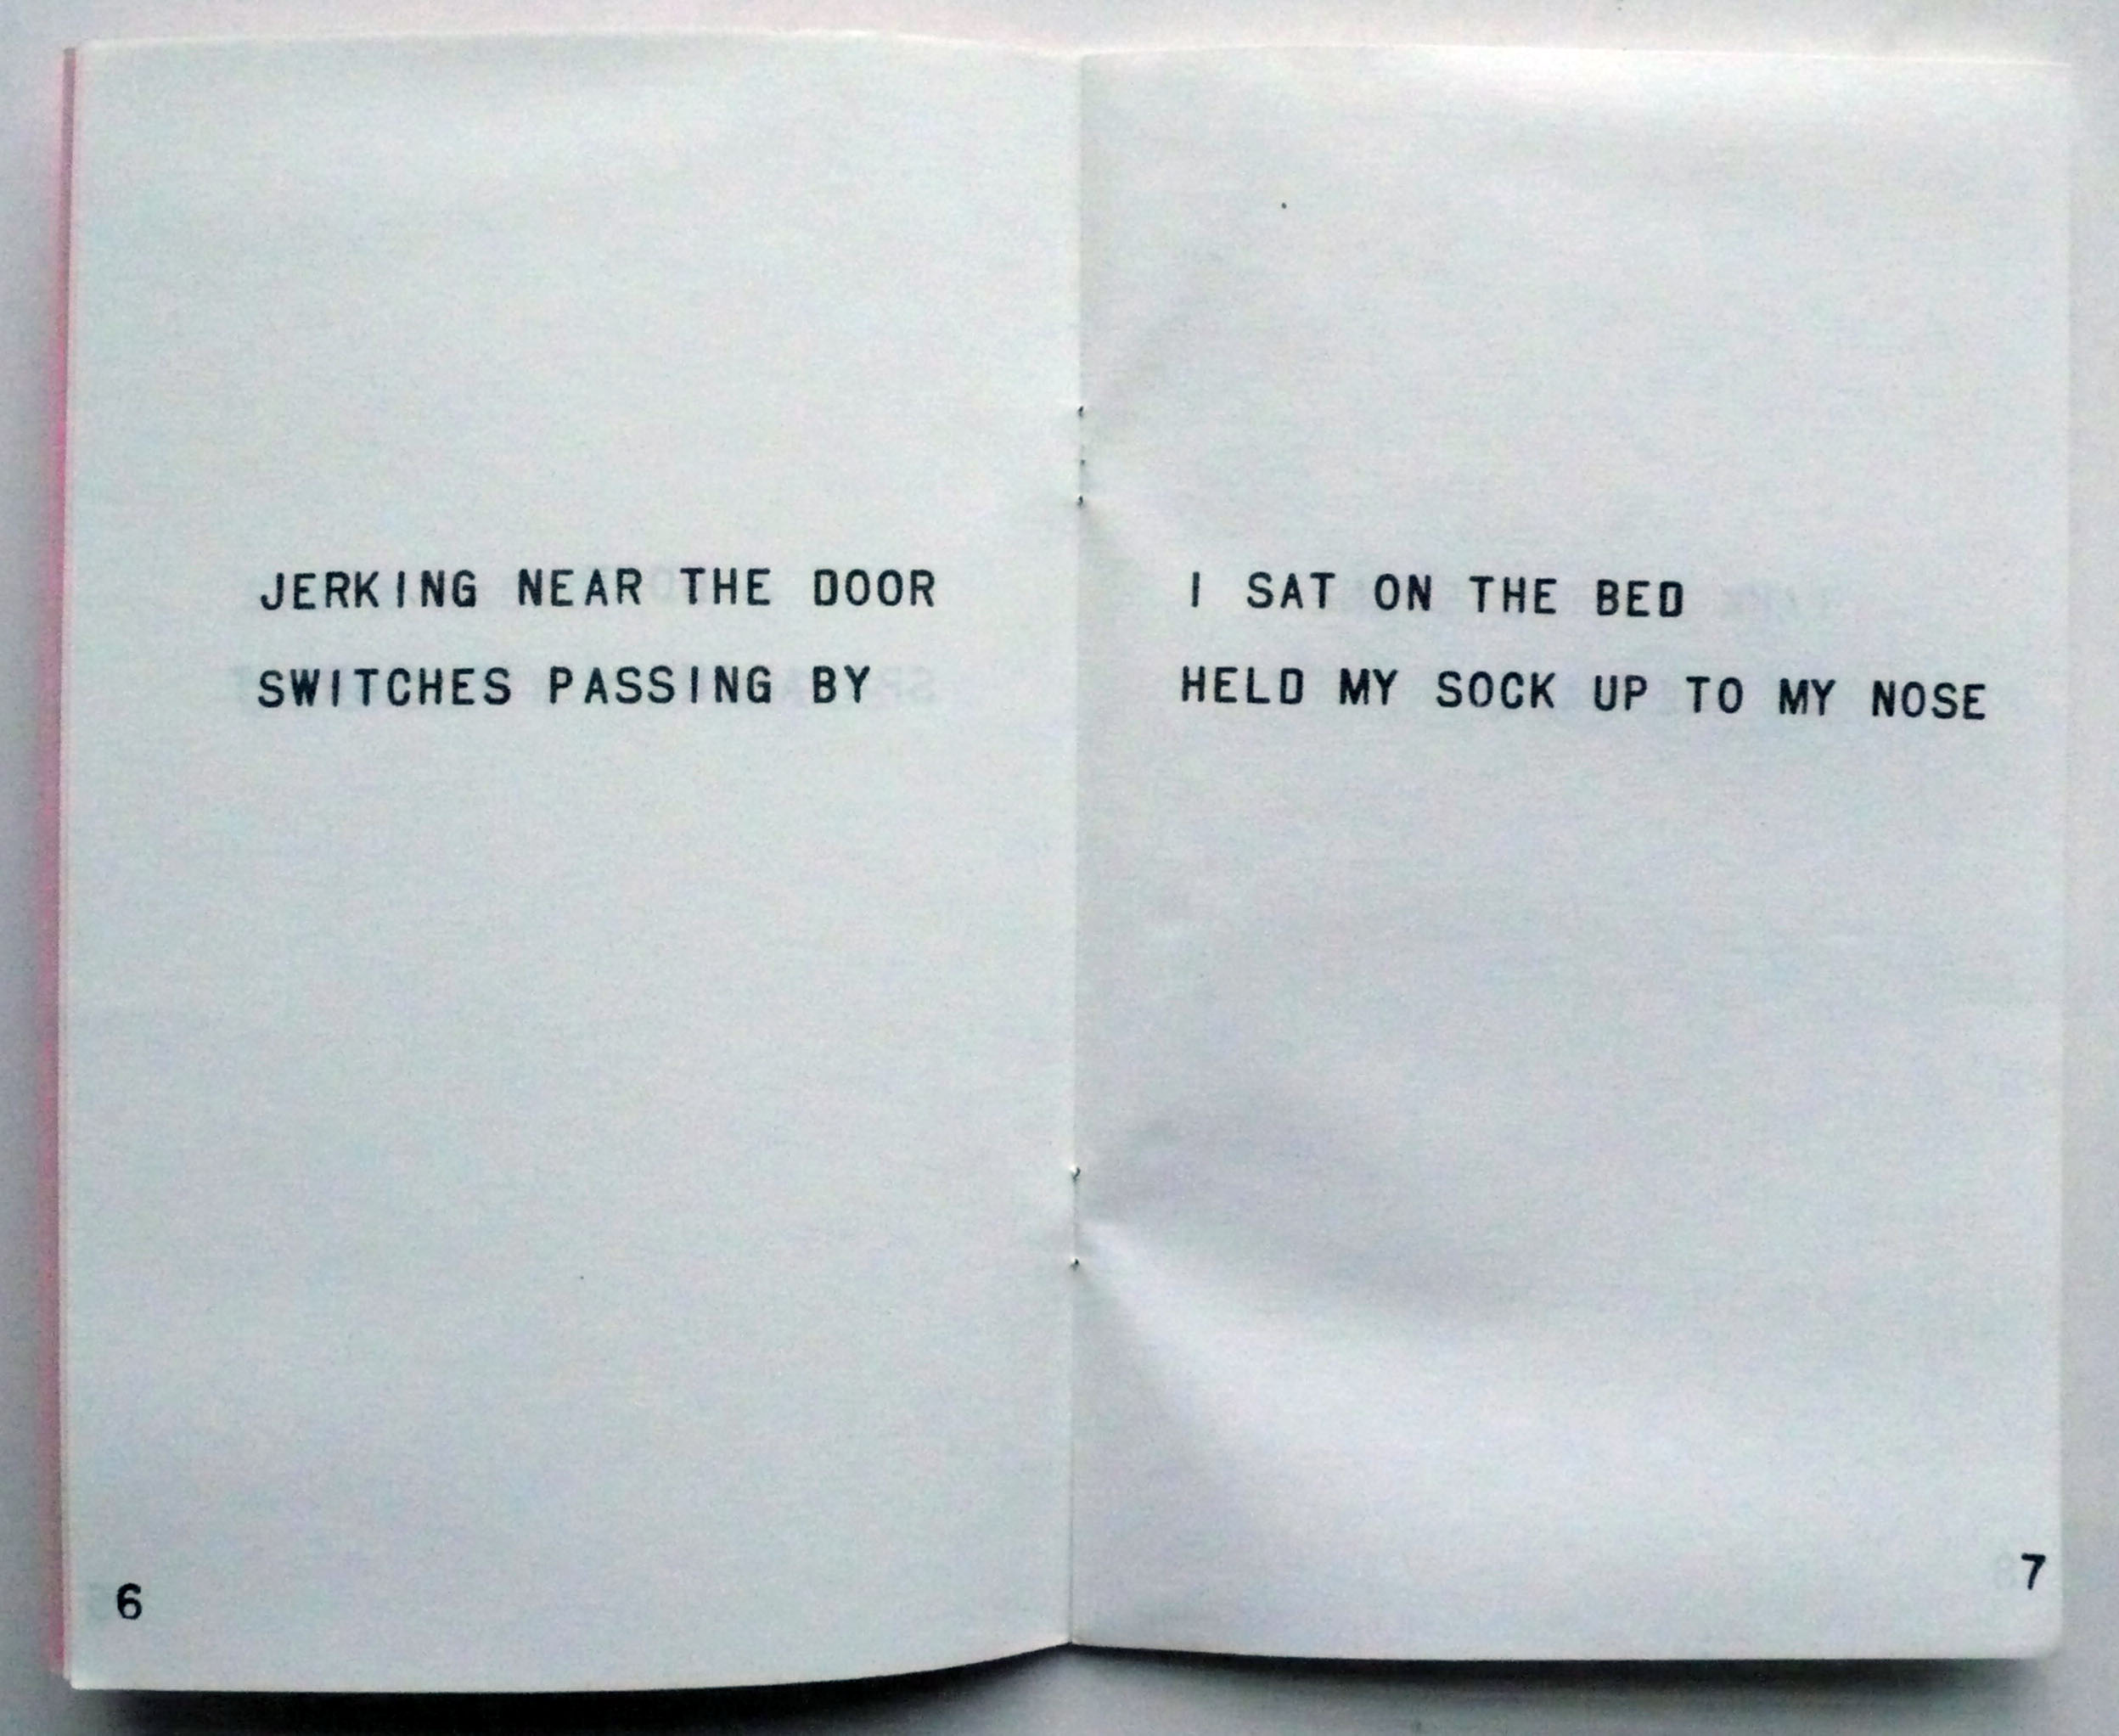 JERKING NEAR THE DOOR
SWITCHES PASSING BY
6
I SAT ON THE BED
HELD MY SOCK UP TO MY NOSE
7